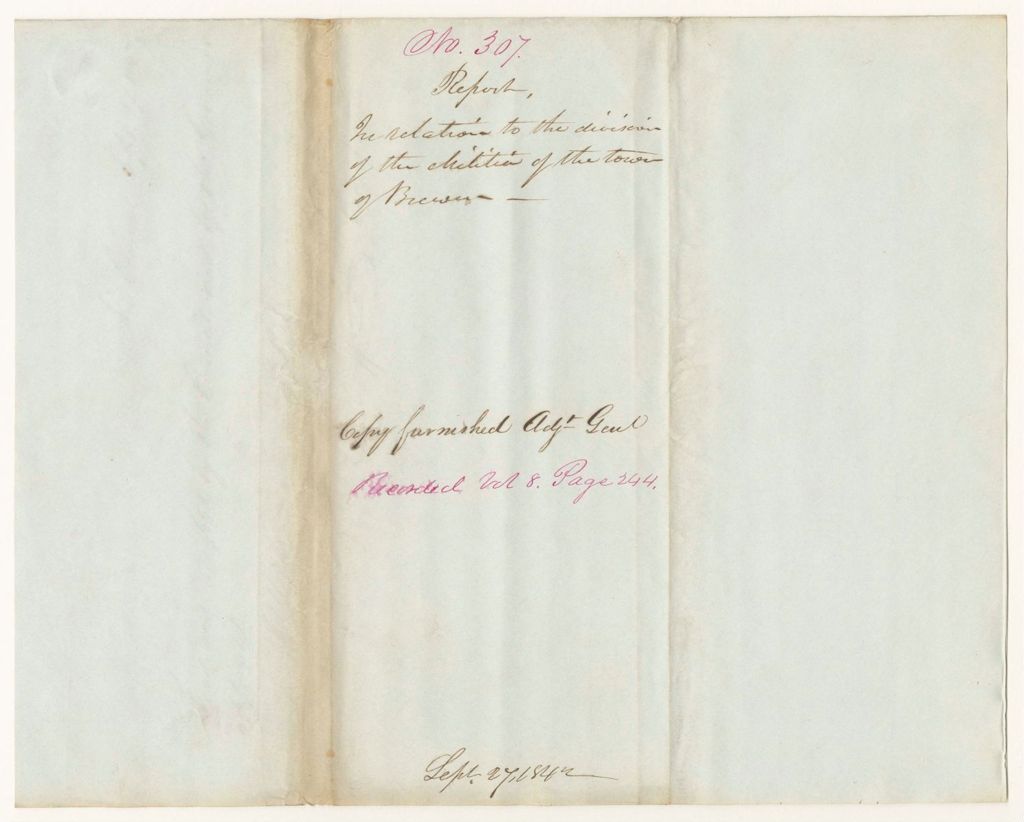 No. 307.
Report,
In relation to the division
of the Militia of the town
of Brewer —
Copy furnished Adjt Genl
Recorded Vol 8. Page 244.
Sept. 27, 1842